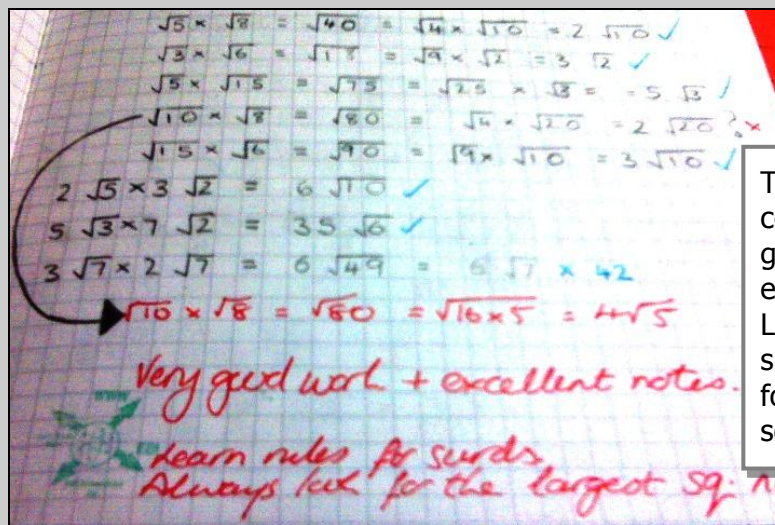 √5 × √8 = √40 = √4 × √10 = 2 √10 ✓
√3 × √6 = √18 = √9 × √2 = 3 √2 ✓
√5 × √15 = √75 = √25 × √3 = = 5 √3 ✓
√10 × √8 = √80 = √4 × √20 = 2 √20 ? ×
√15 × √6 = √90 = √9 × √10 = 3 √10 ✓
2 √5 × 3 √2 = 6 √10 ✓
5 √3 × 7 √2 = 35 √6 ✓
3 √7 × 2 √7 = 6 √49 = 6 √7 × 42
√10 × √8 = √80 = √16×5 = 4√5
Very good work + excellent notes.
WWW
EBI
Learn rules for surds
Always look for the largest sq.